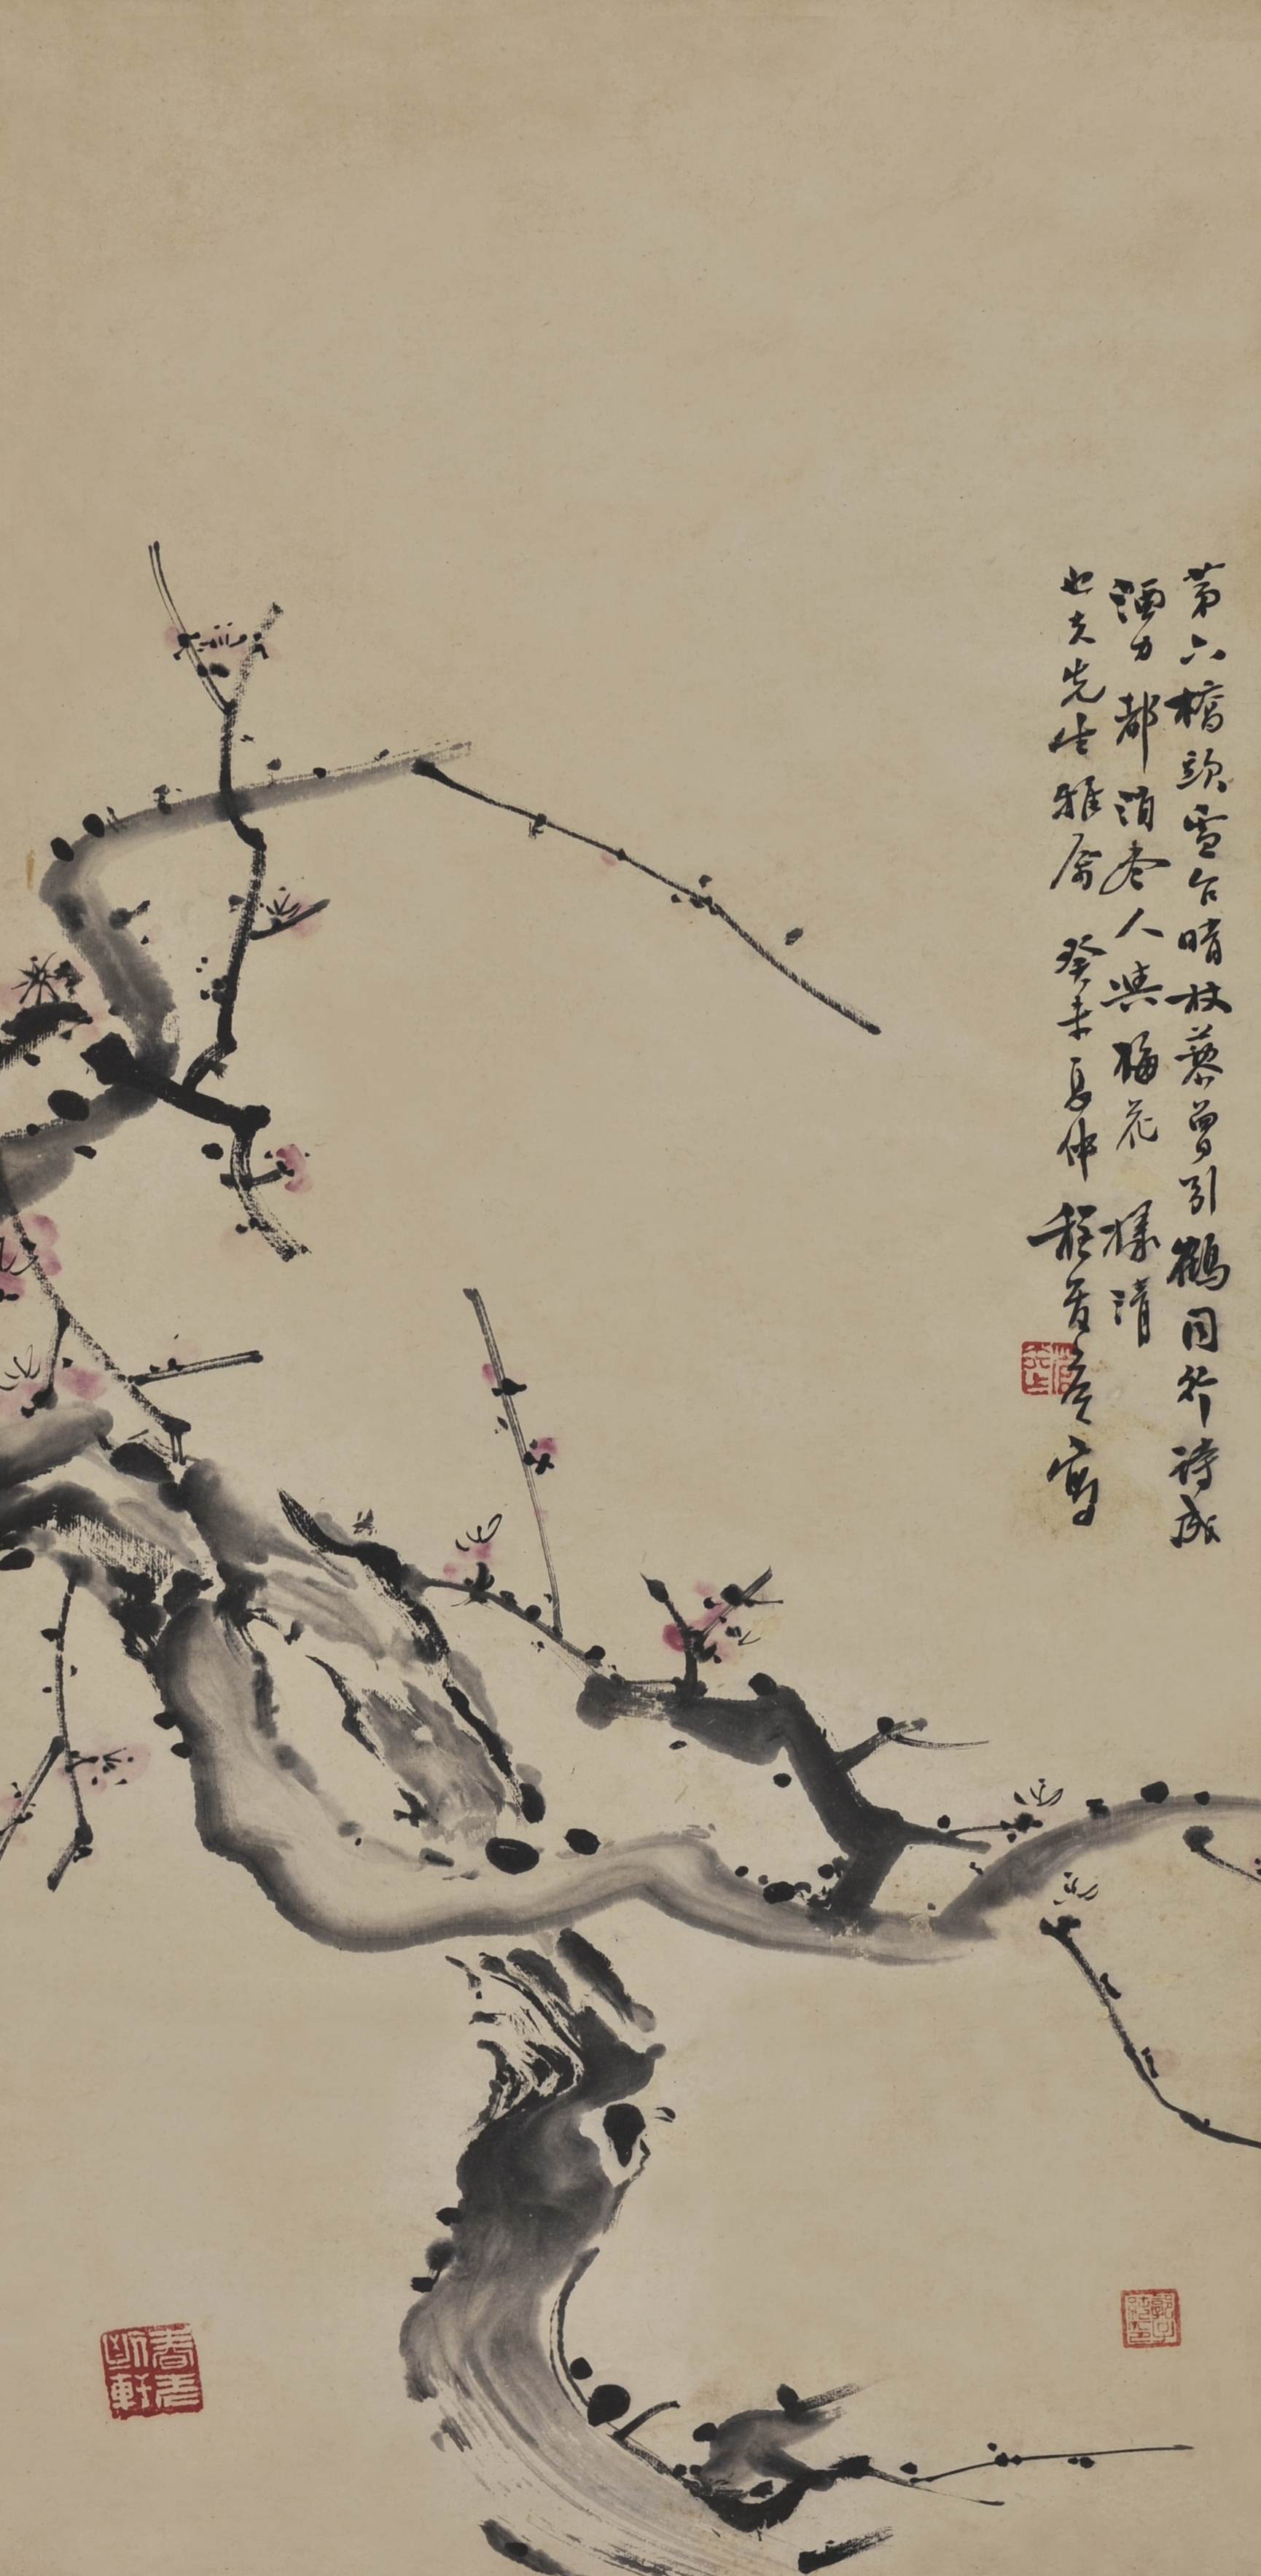 第六橋頭雪乍晴杖藜曾引鶴同行詩成
酒力都消盡人與梅花樣清
也夫先生雅屬 癸未夏仲 程寫